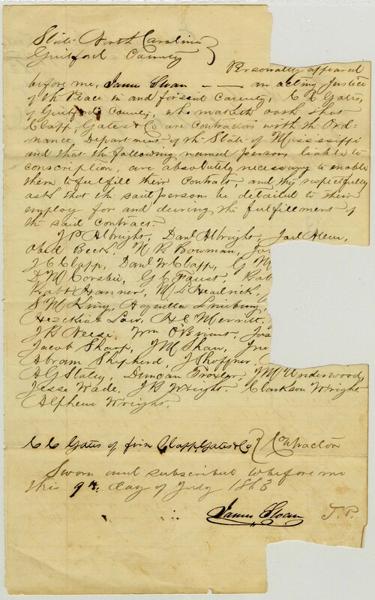 State North Carolina
Guilford County
Personally appeared
before me, James Sloan — — an acting Justice
of the Peace in and for said County, C C Gates,
of Guilford County, who maketh oath that
Clapp, Gates & Co are contractors with the Ord-
nance Department of the State of Mississippi
and that the following named persons liable to
conscription, are absolutely necessary to enable
them to fulfill their contracts, and they respectfully
ask that the said persons be detailed to their
employ for and during the fulfillment of
the said contract.
J P Albright, Danl Albright, Joel
Beck, W R Bowman,
J C Clapp, Danl W Clapp,
D M Corsbie, G E Faust
Hannor, W S Headrick,
S M King,
Hezekiah Law, H C Merritt,
J R Neese, Wm O'Briant, Jos
Jacob Sharp, J M Shaw,
Abram Shepherd, J Shoffner,
A G Staley, Duncan Troxler, J M Underwood,
Jesse Wade, J B Wright, Clarkson Wright
Alpheus Wright.
C C Gates of firm Clapp Gates & Co } Contractors
Sworn and subscribed to before me
this 9th day of July 1863
James Sloan J.P.